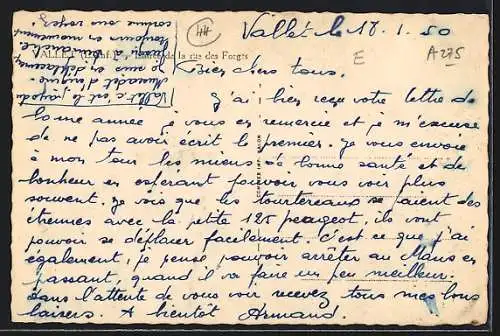 Vallet le 18.1.50
E
A275
44
VALLET (L.-Inf.) - Entrée de la rue des Forges
Bien chers tous.
J'ai bien reçu votre lettre de
bonne année je vous en remercie et je m'excuse
de ne pas avoir écrit le premier. Je vous envoie
à mon tour les miens de bonne santé et de
bonheur en espérant pouvoir vous voir plus
souvent. Je vois que les tourtereaux se paient des
étrennes avec la petite 125 peugeot, ils vont
pouvoir se déplacer facilement. C'est ce que j'ai
également, je pense pouvoir arrêter au Mans en
passant, quand il va faire un peu meilleur.
dans l'attente de vous voir recevez tous mes bons
baisers. A bientôt Armand.
Vallet c'est le pays du
Muscadet
je suis en déplacement
jusqu'à dimanche
toujours en mouvement
comme vous voyez